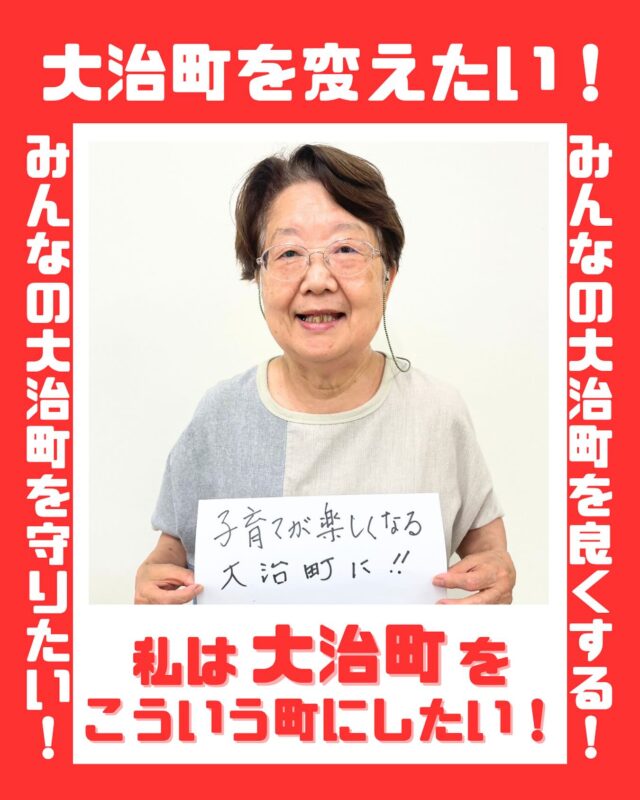 大治町を変えたい！
みんなの大治町を良くする！
みんなの大治町を守りたい！
子育てが楽しくなる
大治町に!!
私は大治町を
こういう町にしたい！